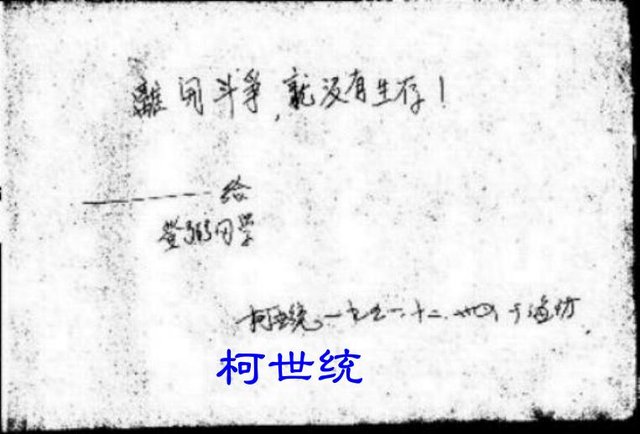 離開斗争,就没有生存!
给
登弼同学
柯世统 一九五一.十二.廿四,于潍坊
柯世统